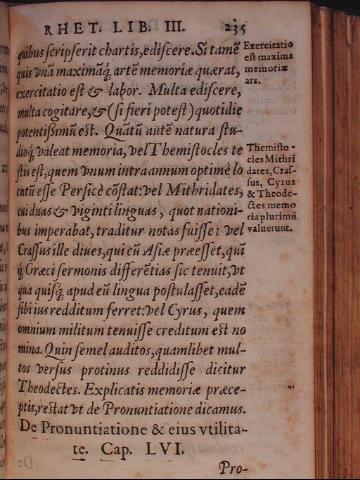 RHET. LIB. III. 235
quibus scripserit chartis, ediscere. Si tamẽ
quis vnã maximãq́; artẽ memoriæ quærat,
exercitatio est & labor. Multa ediscere,
multa cogitare, & (si fieri potest) quotidie
potentissimũ est. Quãtũ autẽ natura stu-
dioq́; valeat memoria, vel Themistocles te
stis est, quem vnum intra annum optimè lo
cutũ esse Persicè cõstat: vel Mithridates,
cui duas & viginti linguas, quot nationi-
bus imperabat, traditur notas fuisse: vel
Crassus ille diues, qui cũ Asiæ præesset, quĩ
q́; Græci sermonis differẽtias sic tenuit, vt
qua quisq́; apud eũ lingua postulasset, eadẽ
sibi ius redditum ferret: vel Cyrus, quem
omnium militum tenuisse creditum est no
mina. Quin semel auditos, quamlibet mul-
tos versus protinus reddidisse dicitur
Theodectes. Explicatis memoriæ præce-
ptis, restat vt de Pronuntiatione dicamus.
De Pronuntiatione & eius vtilita-
te. Cap. LVI.
Pro-
Exercitatio
est maxima
memoriæ
ars.
Themisto-
cles Mithri
dates, Cras-
sus, Cyrus
& Theode-
ctes memo
ria plurimũ
valuerunt.